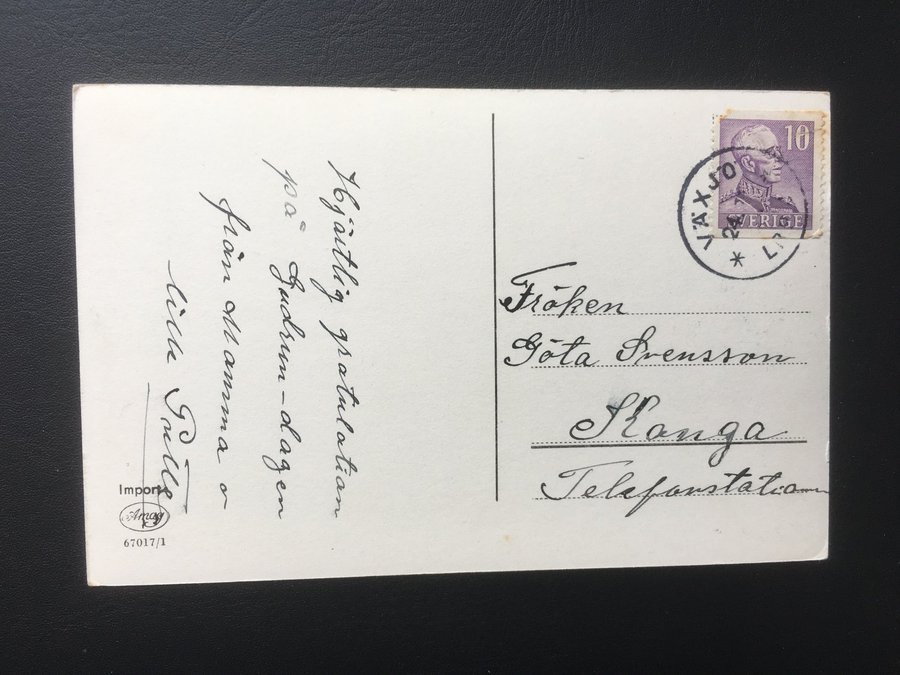 Hjärtlig gratulation
på Gudrun-dagen
från Mamma o
lilla Pulle
Import
Amag
67017/1
10
SVERIGE
VÄXJÖ
24
LBR
Fröken
Göta Svensson
Konga
Telefonstation